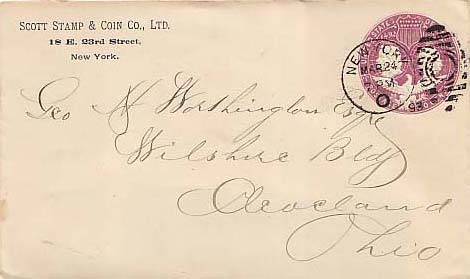 SCOTT STAMP & COIN CO., LTD.
18 E. 23rd Street,
New York.
NEW YORK
MAR 24
Geo H Worthington Esqr
Wilshire Bldg
Cleveland
Ohio